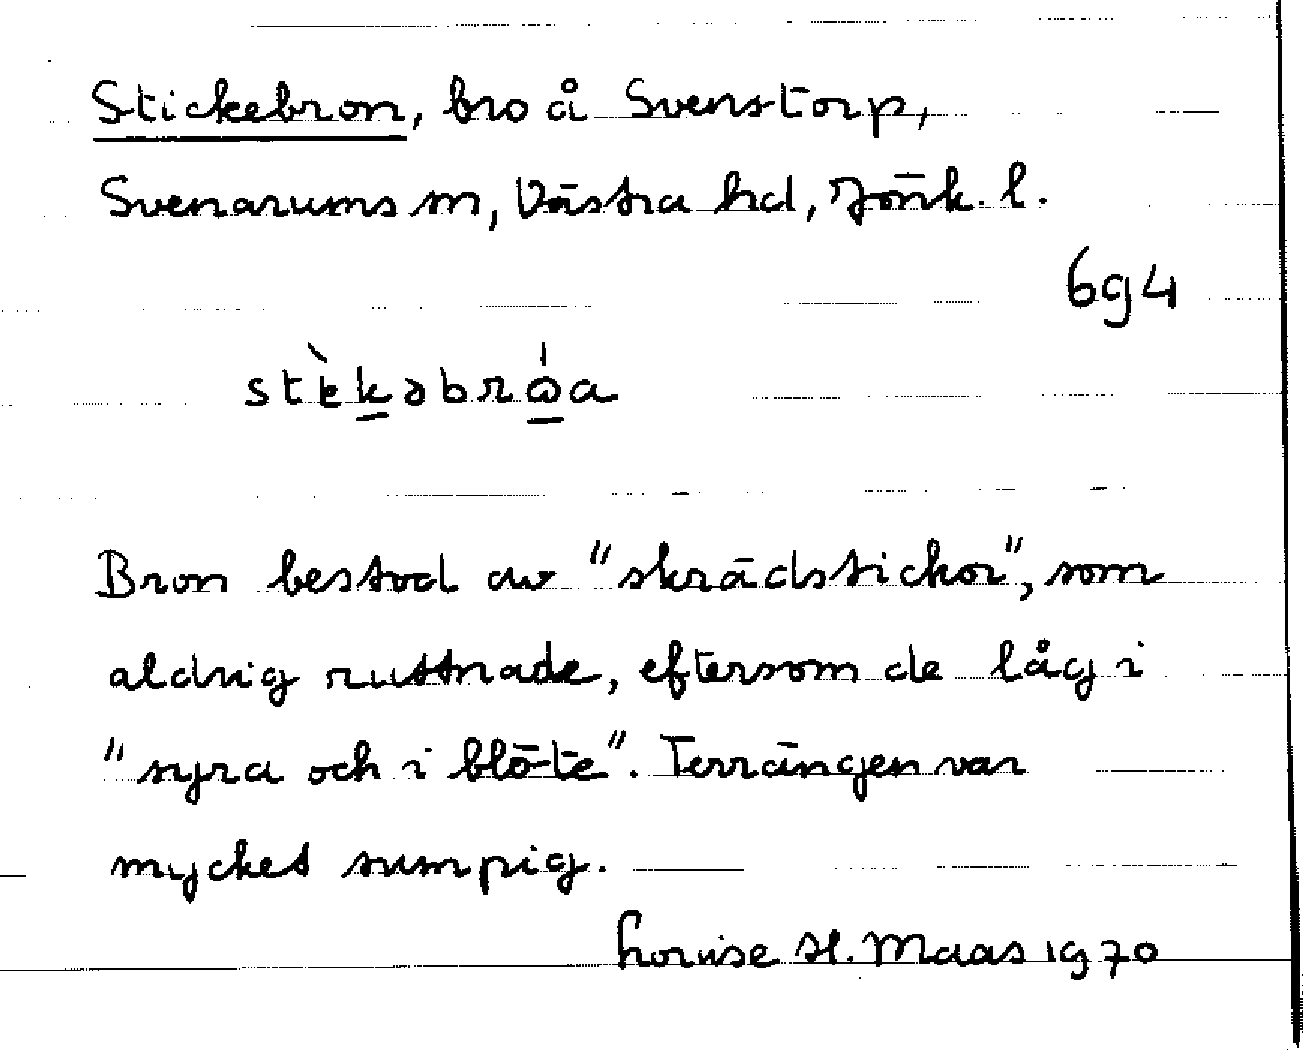 Stickebron, bro å Svenstorp,
Svenarums sn, Västra hd, Jönk. l.
6g4
stɛ̀k̲əbrώ̲a
Bron bestod av "skrädstickor", som
aldrig ruttnade, eftersom de låg i
"syra och i blöte". Terrängen var
mycket sumpig.
Louise st. Maas 1970